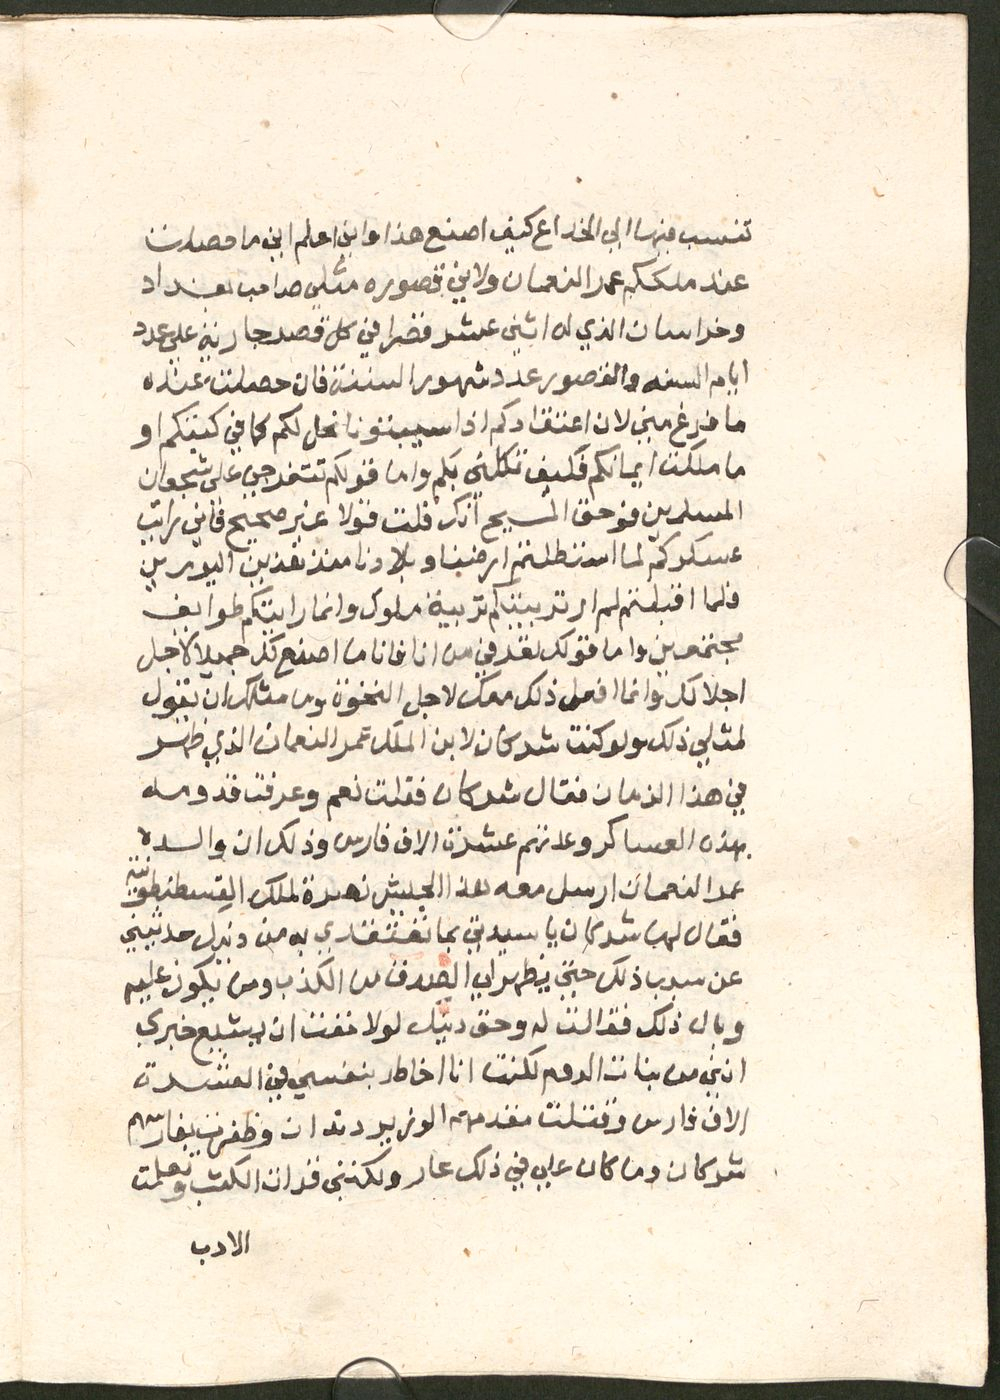 تنسب فيها الي الخداع كيف اصنع هذا واني اعلم اني ما حصلت
عند ملككم عمر النعمان ولا في قصوره مثلي صاحب بغداد
وخراسان الذي له اثني عشر قصرا في كل قصر جاريه على عدد
ايام السنه والقصور عدد شهور السنة فان حصلت عنده
ما فرغ مني لان اعتقادكم اذا سبيتونا نحل لكم كما في كتبكم او
ما ملكت ايمانكم فكيف تكلمني بكم واما قولكم تتفرجي على شجعان
المسلمين فوحق المسيح انك قلت قولا غير صحيح فاني رايت
عسكركم لما استنظلتم ارضنا وبلادنا منذ هذين اليومين
فلما اقبلتم لم ار تربيتكم تربية ملوك وانما رايتكم طوايف
مجتمعين واما قولك تعرفي من انا فانا ما اصنع كل جميلا لاجل
اجلالك وانما افعل ذلك معك لاجل النخوة وما مثلك ان يقول
لمثلي ذلك ولو كنت شركان لابن الملك عمر النعمان الذي ظهر
في هذا الزمان فقال شركان فقلت نعم وعرفت قدومه
بهذه العساكر وعدتهم عشرة الاف فارس وذلك ان والده
عمر النعمان ارسل معه هذا الجيش نصرة لملك القسطنطونية
فقال لها شركان يا سيدتي بما تعتقدي به من دينك حدثيني
عن سبب ذلك حتى يظهر لي الصدق من الكذب ومن يكون عليه
وبال ذلك فقالت له وحق دينك لولا خفت ان يشيع خبري
انني من بنات الروم لكنت انا اخاطر بنفسي في العشرت
الاف فارس وقتلت مقدمهم الوزير دندان وظفرت بفارسهم
شركان وما كان علي في ذلك عار ولكنني قرات الكتب وتعلمت
الادب